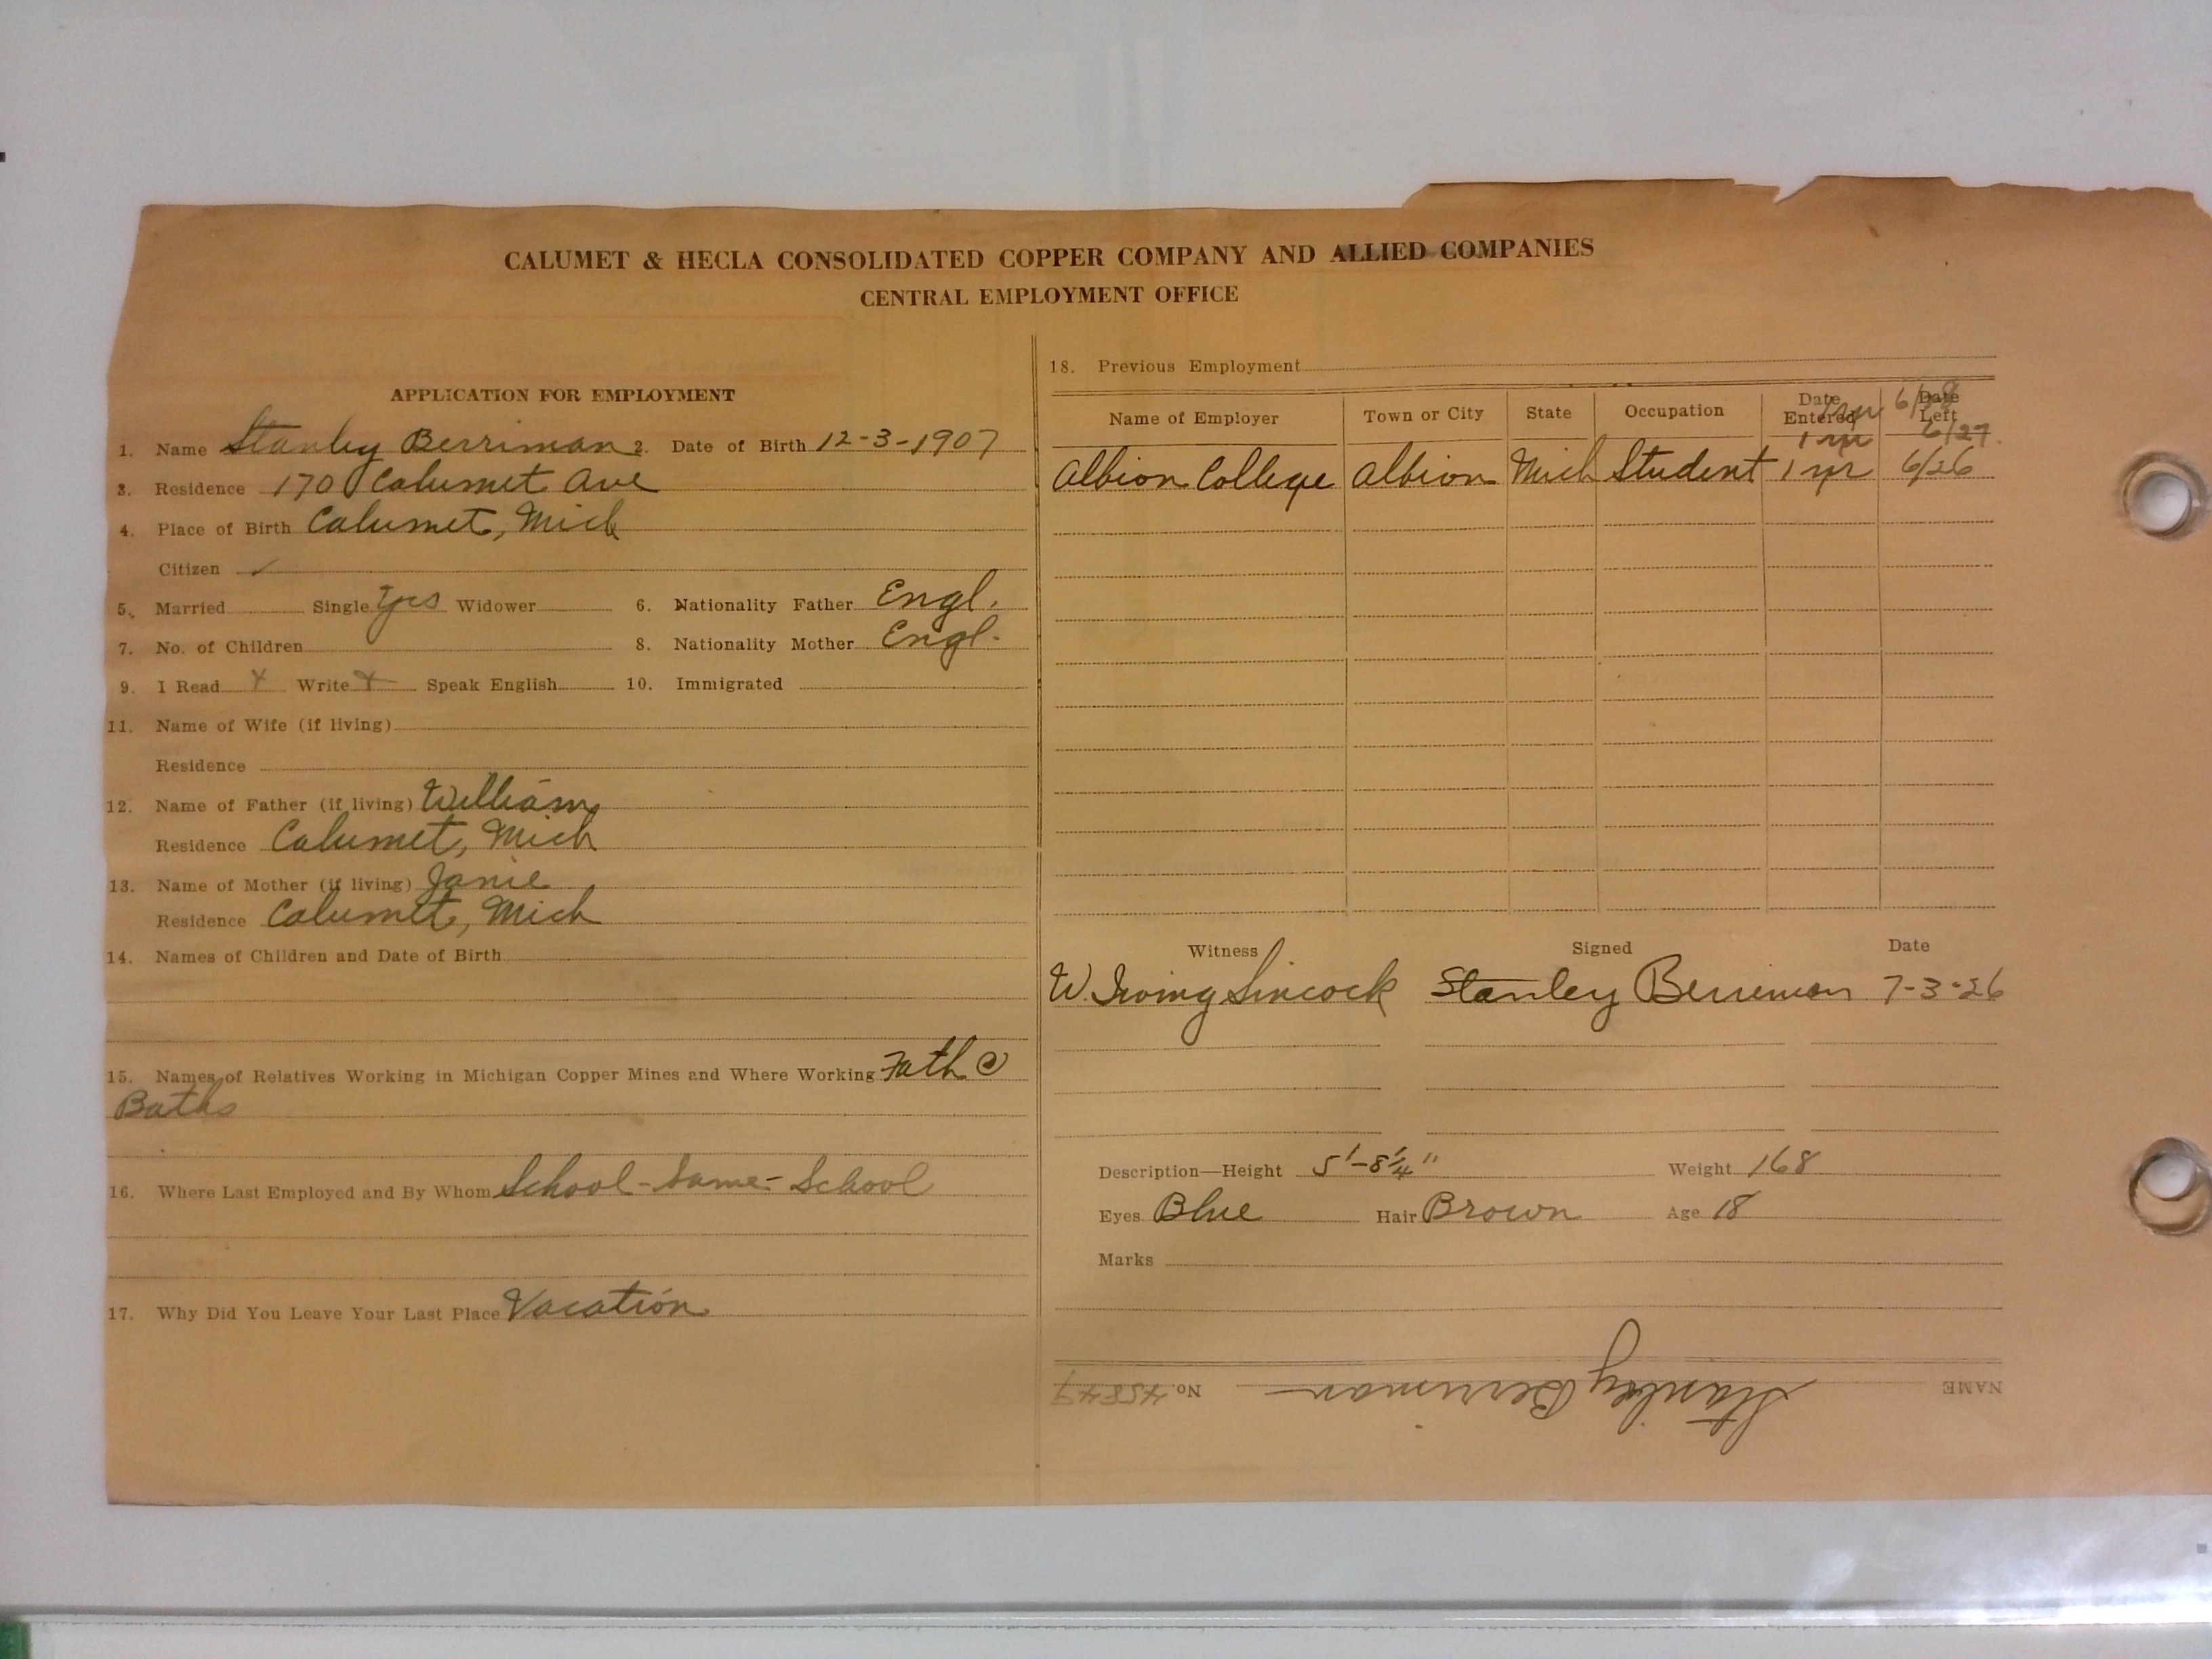 CALUMET & HECLA CONSOLIDATED COPPER COMPANY AND ALLIED COMPANIES
CENTRAL EMPLOYMENT OFFICE
APPLICATION FOR EMPLOYMENT
1. Name Stanley Berriman 2. Date of Birth 12-3-1907
3. Residence 170 Calumet Ave
4. Place of Birth Calumet, Mich
Citizen ✓
5. Married Single Yes Widower 6. Nationality Father Engl.
7. No. of Children 8. Nationality Mother Engl.
9. I Read X Write X Speak English 10. Immigrated
11. Name of Wife (if living)
Residence
12. Name of Father (if living) William
Residence Calumet, Mich
13. Name of Mother (if living) Janie
Residence Calumet, Mich
14. Names of Children and Date of Birth
15. Names of Relatives Working in Michigan Copper Mines and Where Working Fath @
Baths
16. Where Last Employed and By Whom School - Same - School
17. Why Did You Leave Your Last Place Vacation
18. Previous Employment
Name of Employer Town or City State Occupation Date Entered Date Left
1 yr 6/28
1 yr 6/27
Albion College Albion Mich Student 1 yr 6/26
Witness Signed Date
W. Irving Sincock Stanley Berriman 7-3-26
Description—Height 5'-8 1/4" Weight 168
Eyes Blue Hair Brown Age 18
Marks
NAME Stanley Berriman No. 45847